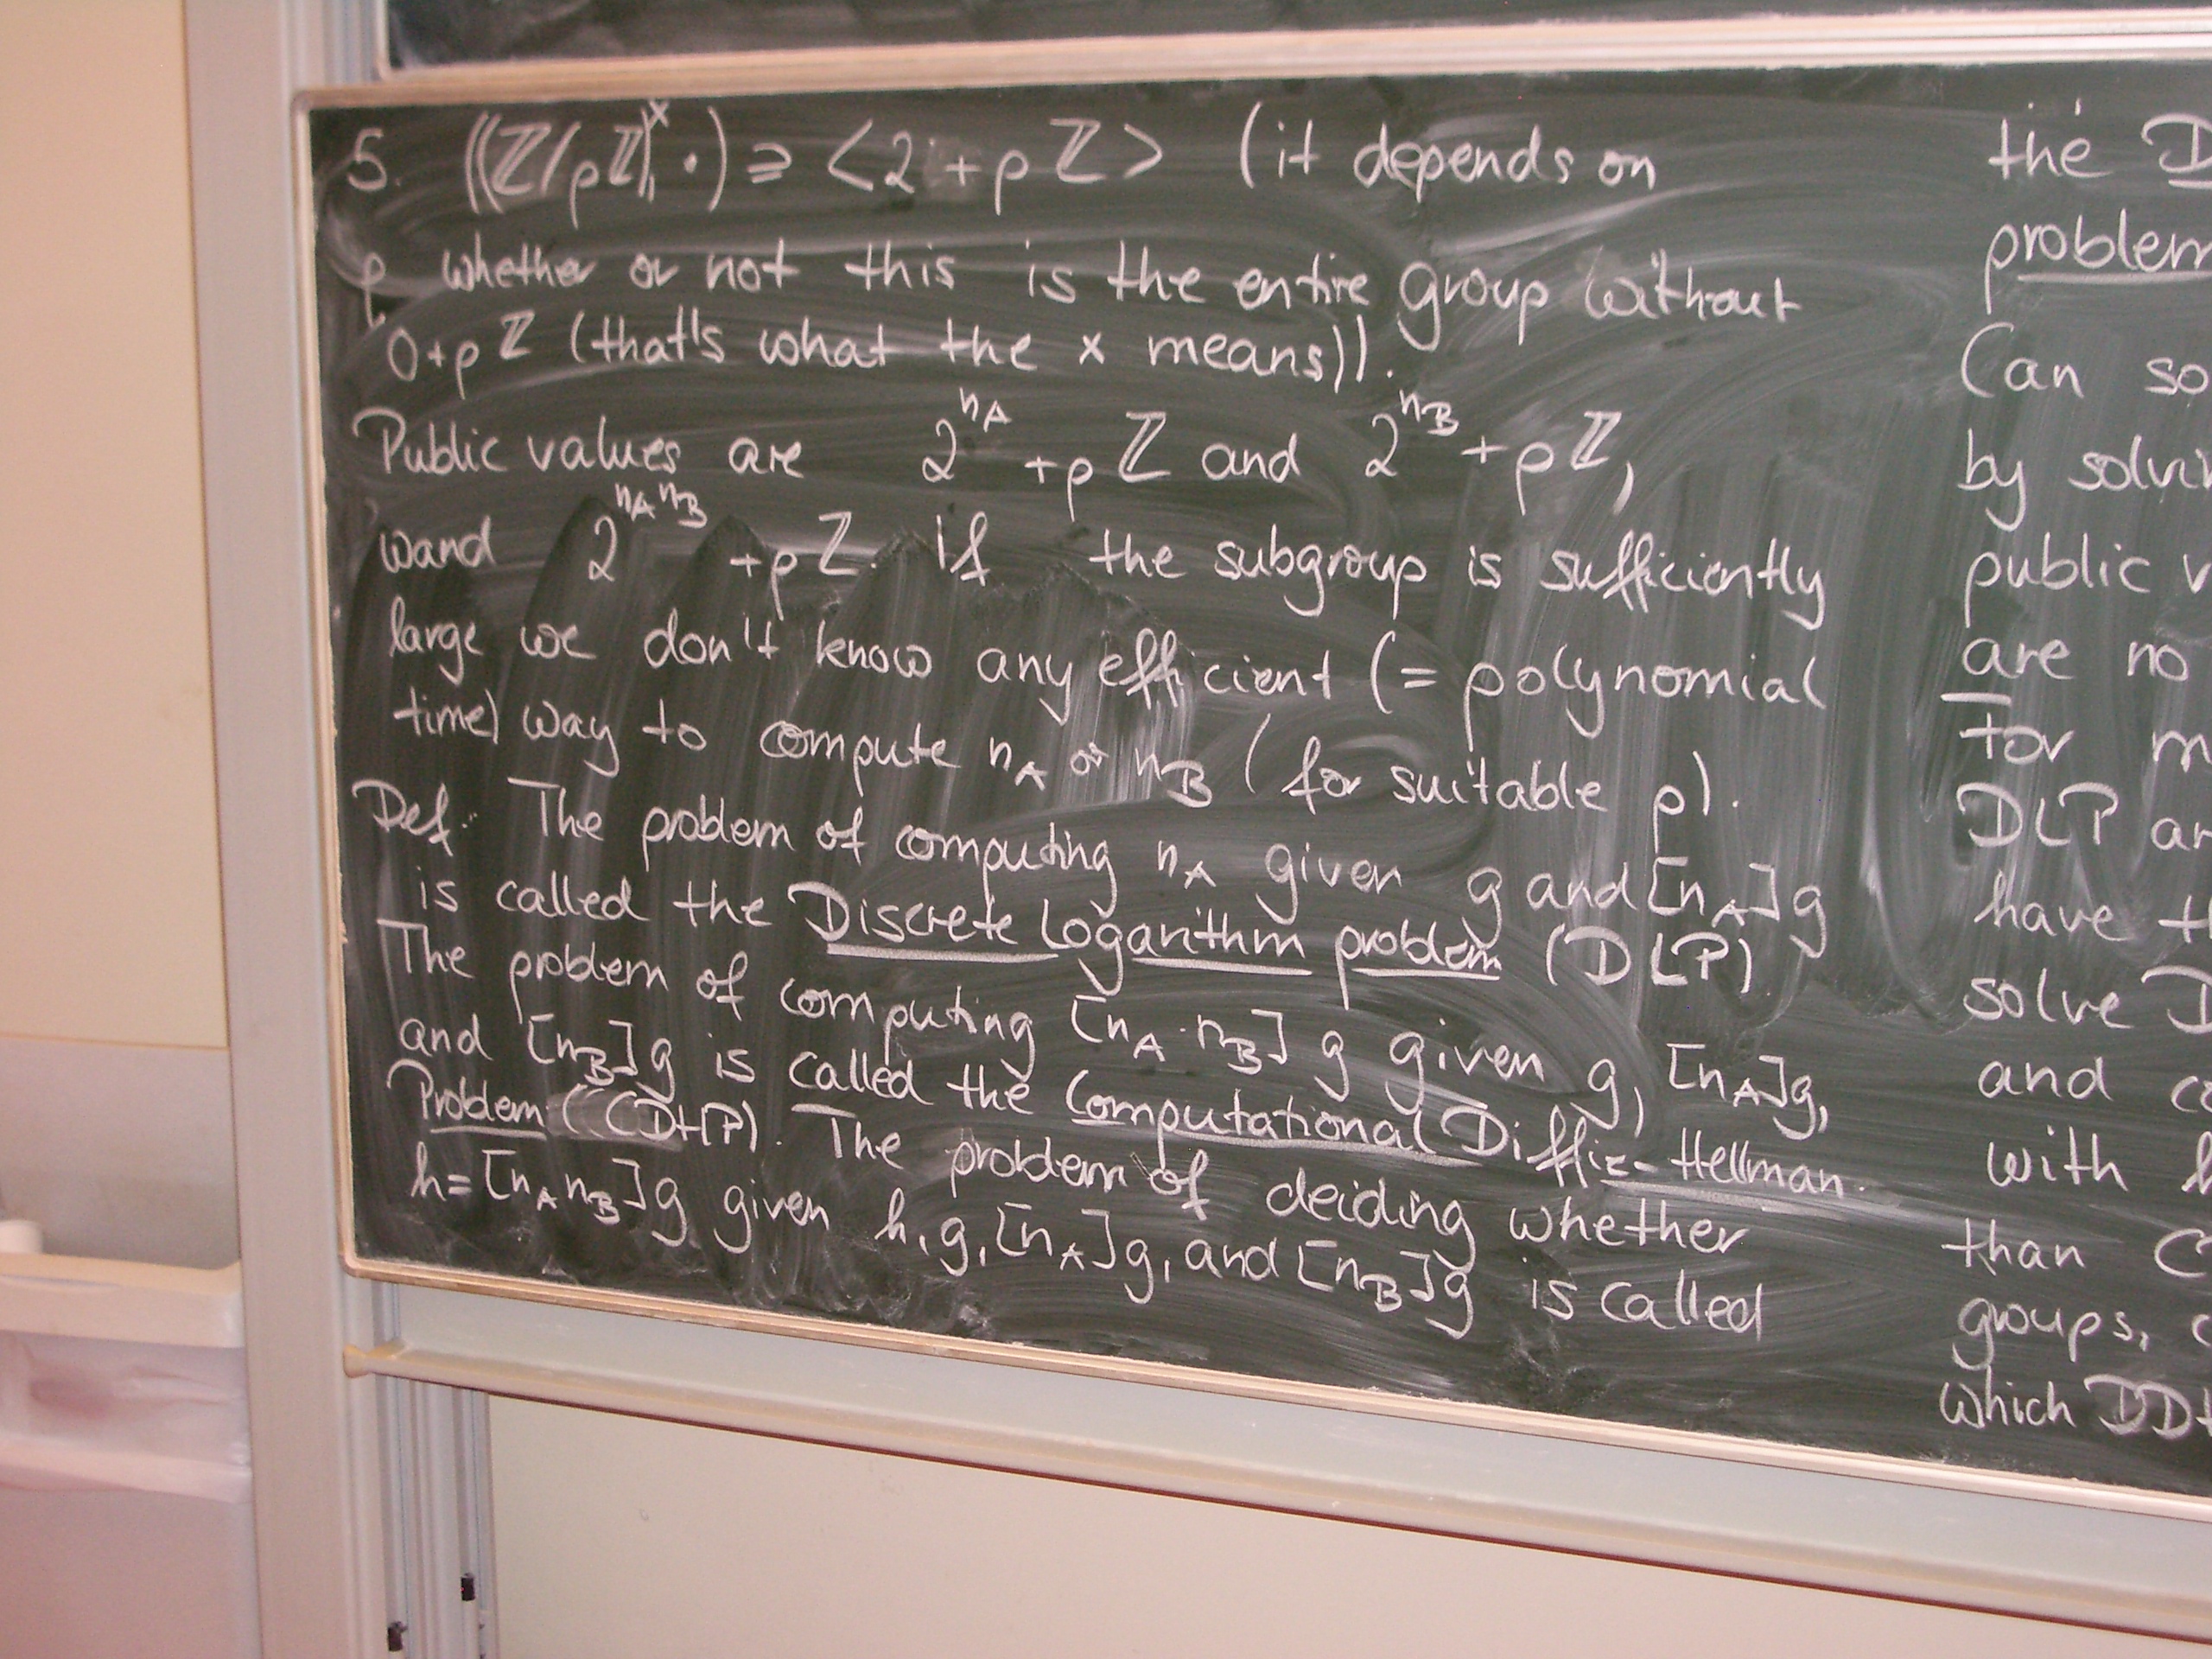 5. ((ℤ/pℤ)^×, ·) ⩾ <2+pℤ> (it depends on
p whether or not this is the entire group without
0+pℤ (that's what the x means)).
Public values are 2^{n_A}+pℤ and 2^{n_B}+pℤ,
wand 2^{n_A n_B}+pℤ. if the subgroup is sufficiently
large we don't know any efficient (= polynomial
time) way to compute n_A or n_B (for suitable p).
Def.: The problem of computing n_A given g and [n_A]g
is called the Discrete Logarithm problem (DLP)
The problem of computing [n_A·n_B]g given g, [n_A]g,
and [n_B]g is called the Computational Diffie-Hellman
Problem (CDHP). The problem of deciding whether
h=[n_A n_B]g given h, g, [n_A]g, and [n_B]g is called
the D
problem
Can so
by solvin
public v
are no
for m
DLP an
have th
solve D
and co
with
than C
groups,
which DDH